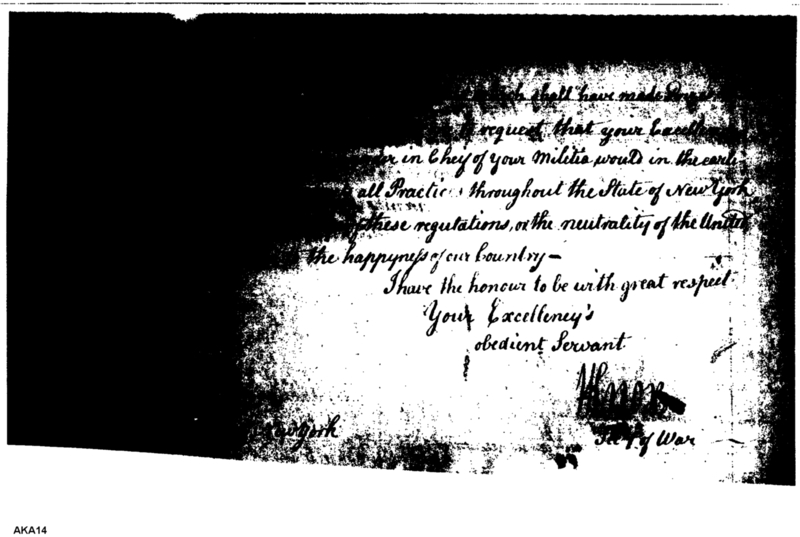 shall have made
request that your Excellency
in Chief of your Militia would in the earli
all Practic throughout the State of New York
these regulations, or the neutrality of the United
the happyness of our Country—
I have the honour to be with great respect
Your Excellency's
obedient Servant
HKnox
Sec.y of War
York
AKA14